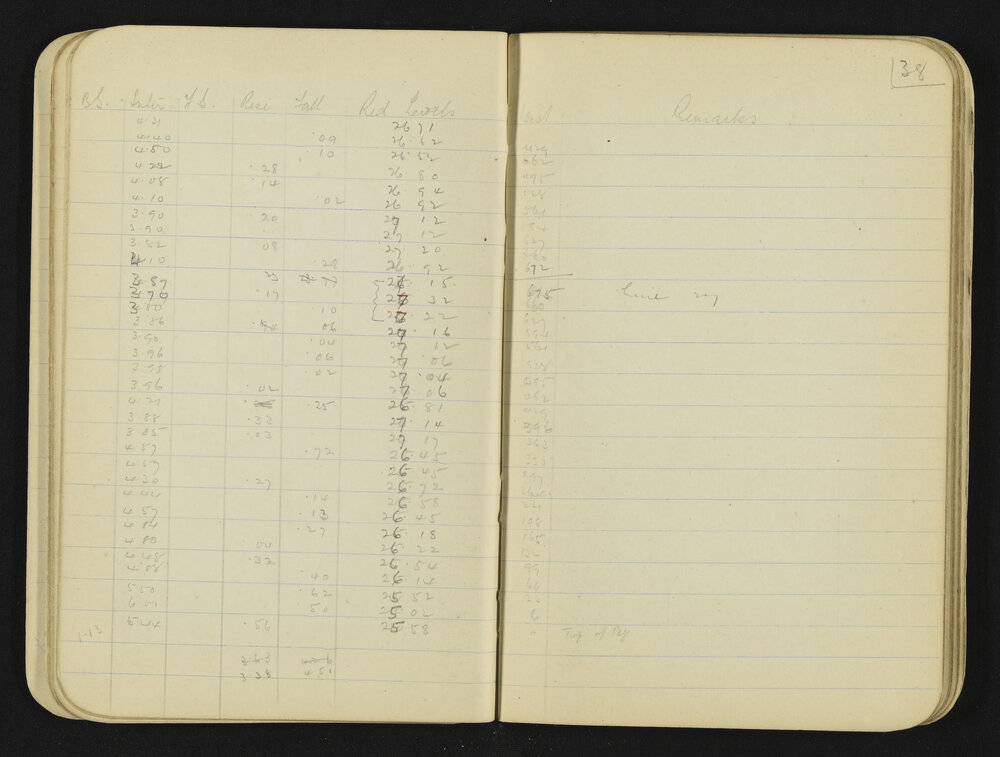 38
B.S. Inter F.S. Rise Fall Red Levels Dist Remarks
4.31 26 71
4.40 .09 26.62 429
4.50 .10 26.52 462
4.22 .28 26 80 495
4.08 .14 26 94 528
4.10 .02 26 92 561
3.90 .20 27 12 594
3.90 .. 27 12 627
3.82 .08 27 20 660
4.10 .28 26.92 672
3.87 23 27 15 675 Line
3.70 .17 27 32 660
3.80 .10 27 22 627
3.86 .06 27 16 594
3.90 .04 27 12 561
3.96 .06 27.06 528
3.98 .02 27.04 495
3.96 .02 27 06 462
4.21 .25 26 81 429
3.88 .33 27.14 396
3.85 .03 27 17 363
4.57 .72 26.45 330
4.57 26.45 297
4.30 .27 26.72
4.44 .14 26 58 231
4.57 .13 26 45 198
4.84 .27 26 18 165
4.80 .04 26 22 132
4.48 .32 26 54 99
4.88 .40 26 14 66
5.50 .62 25 52 33
6.00 .50 25 02 6
1.13 5.44 .56 25 58 0 Top of Peg
3.63
3 38 4.51